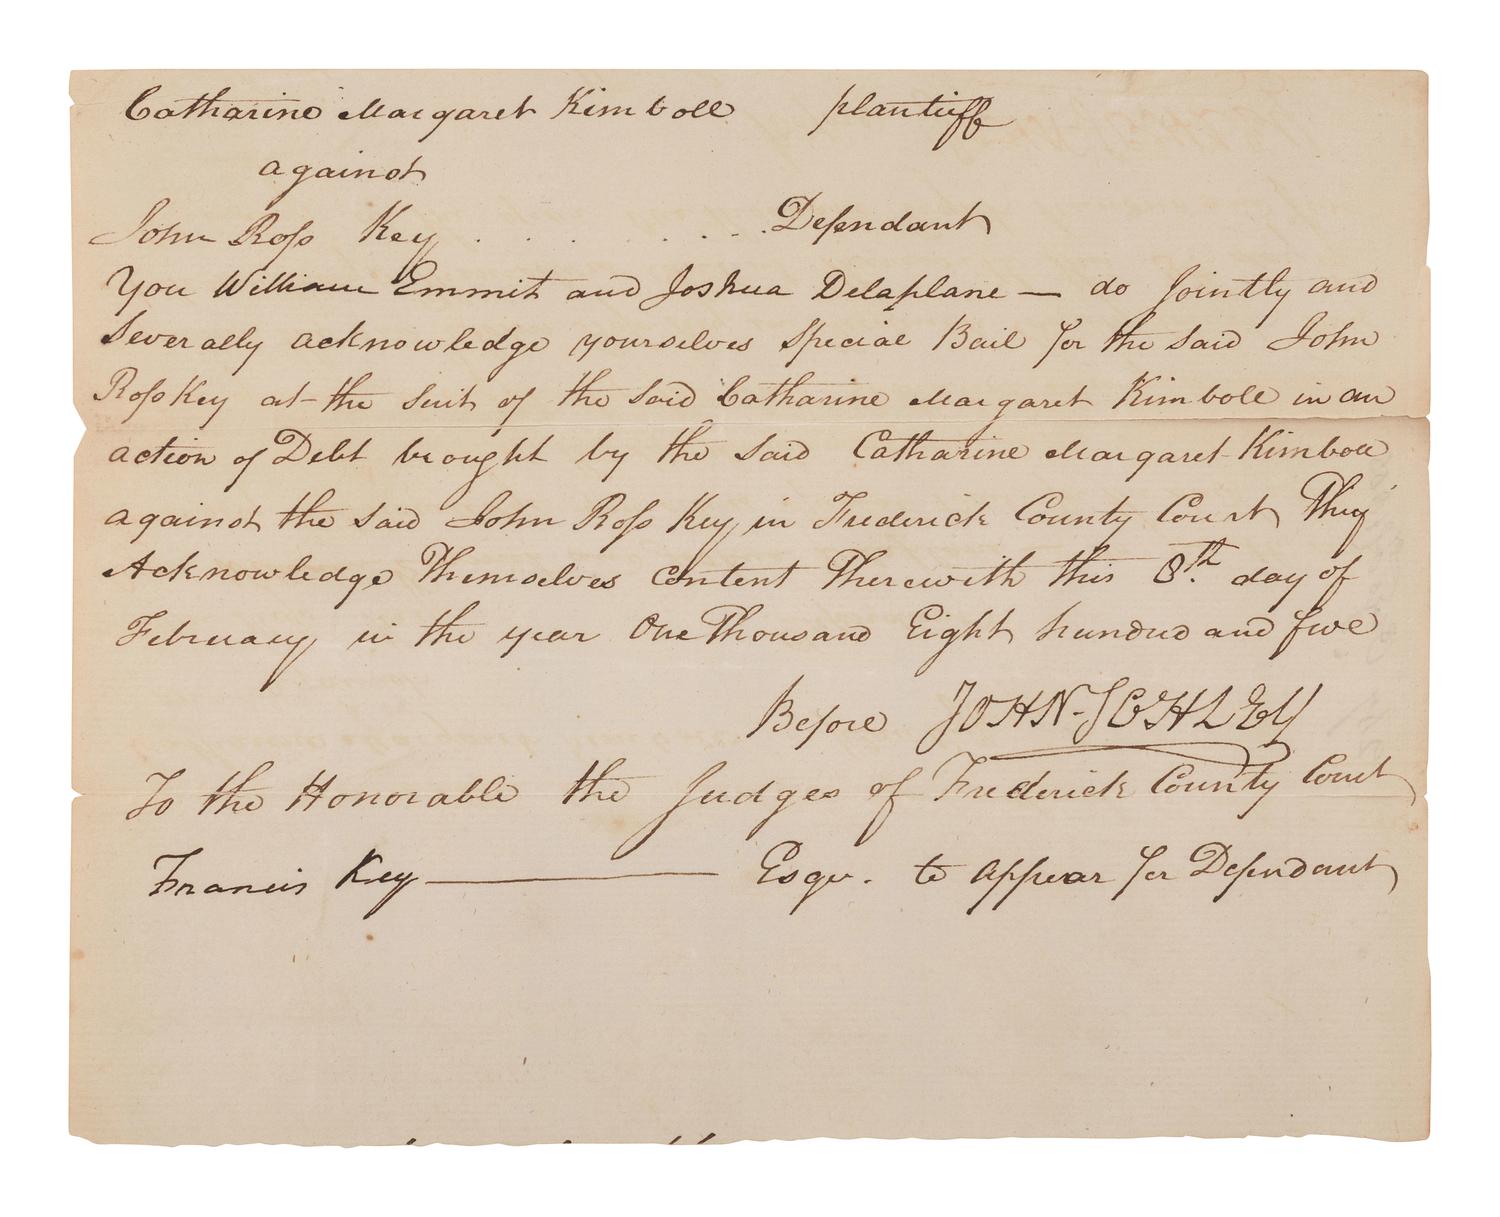 Catharine Margaret Kimboll plantiff
against
John Ross Key . . . . . . . Defendant
You William Emmit and Joshua Delaplane — do Jointly and
Severally acknowledge yourselves Special Bail for the said John
Ross Key at the Suit of the said Catharine Margaret Kimboll in an
action of Debt brought by the said Catharine Margaret Kimboll
against the said John Ross Key in Frederick County Court They
Acknowledge Themselves content Therewith this 8th. day of
February in the year One Thousand Eight hundred and five
Before JOHN
To the Honorable the Judges of Frederick County Court
Francis Key — Esqr. to appear for Defendant